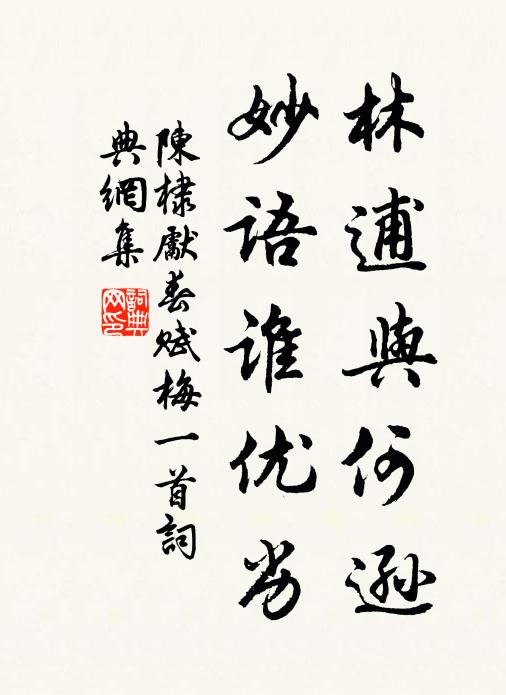 林逋與何遜
妙語誰优劣
陳棣獻春賦梅一首詞
典網集
詞典網印